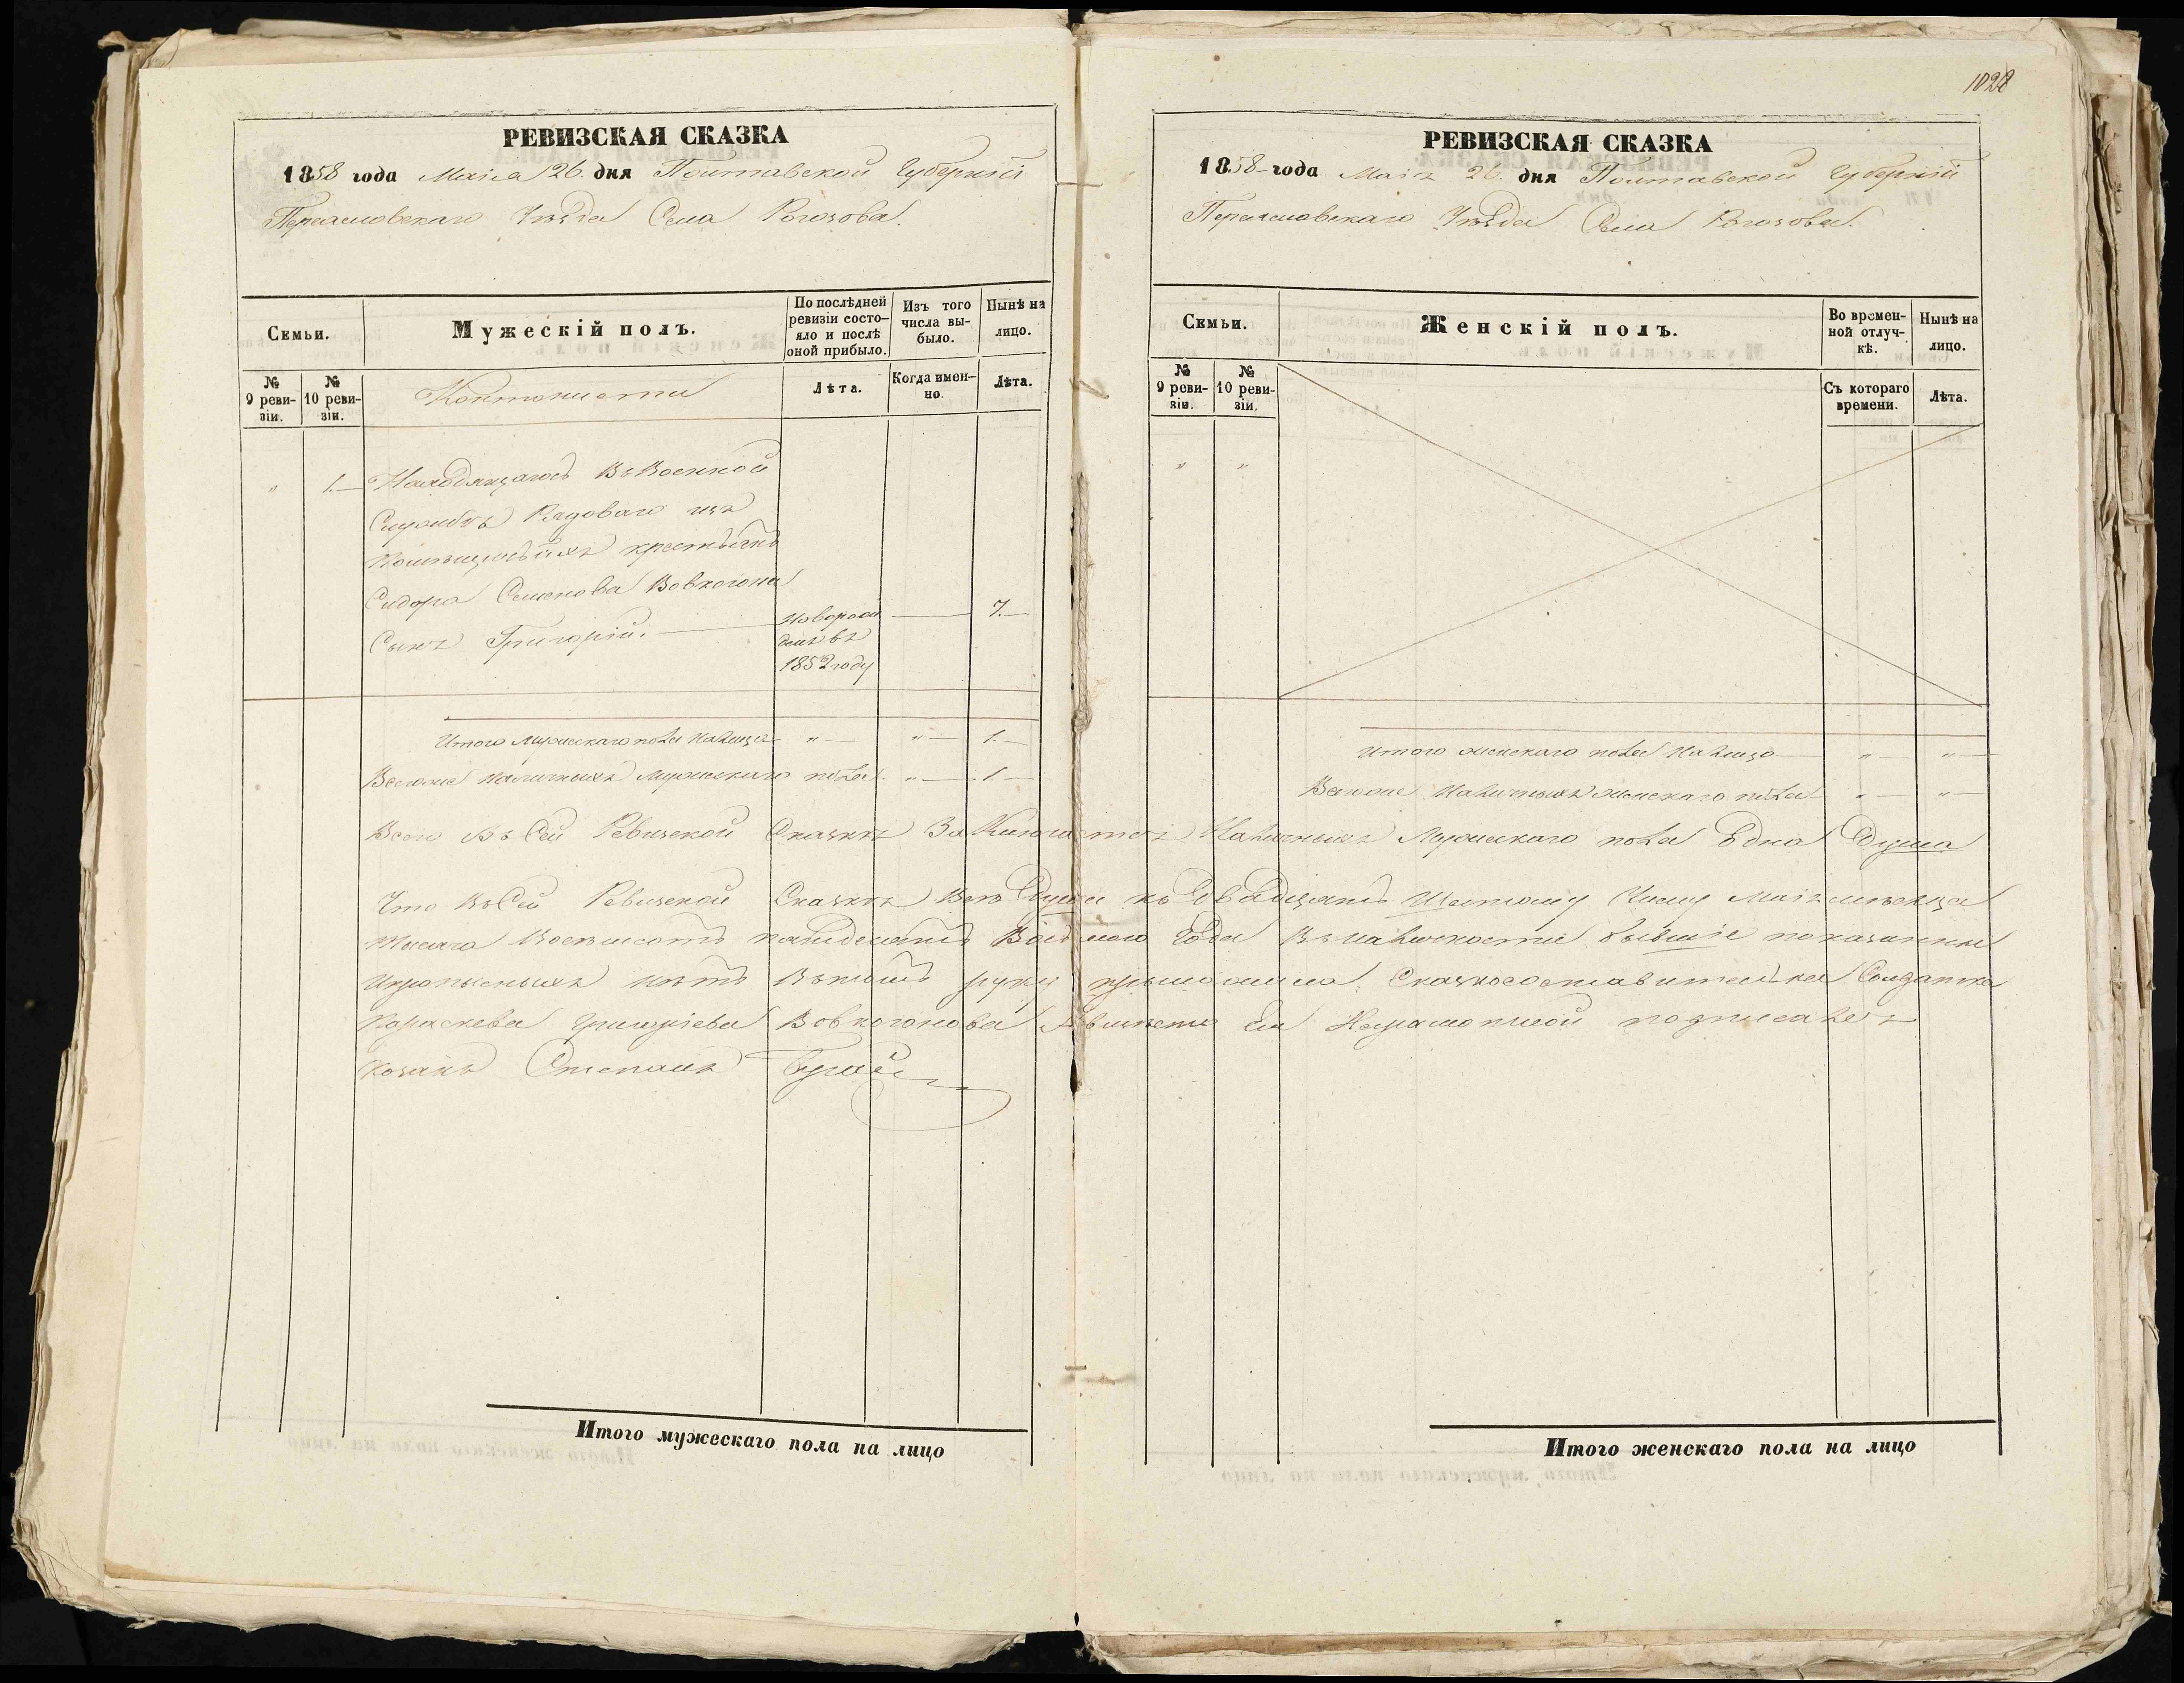 1028
РЕВИЗСКАЯ СКАЗКА
1858 года Маія 26. дня Полтавской Губерніи
Переясловскаго Уѣзда Села Рогозова.
Семьи.
Мужескій полъ.
По послѣдней ревизіи состо-яло и послѣ оной прибыло.
Изъ того числа вы-было.
Нынѣ на лицо.
№ 9 реви-зіи.
№ 10 реви-зіи.
Кантонисты
Лѣта.
Когда имен-но.
Лѣта.
„ 1. Находящагось Въ Военной
Службѣ Рядоваго изъ
крестьянъ
Сидора Семенова Вовкогона
Сынъ Григорій. новорож 7.
денъ въ
1852 году
Итого Мужескаго пола налицо „ „ 1.
Всегоже наличныхъ Мужескаго пола „ 1.
РЕВИЗСКАЯ СКАЗКА
1858 года Маія 26. дня Полтавской Губерніи
Переясловскаго Уѣзда Села Рогозова.
Семьи.
Женскій полъ.
Во времен-ной отлуч-кѣ.
Нынѣ на лицо.
№ 9 реви-зіи.
№ 10 реви-зіи.
Съ котораго времени.
Лѣта.
„ „
Итого женскаго пола Налицо „ „
Всегоже Наличныхъ женскаго пола „ „
Всего Въ Сей Ревизской Сказкѣ Заключается Наличныхъ Мужескаго пола Една Душа
Что Въ Сей Ревизской Сказкѣ Всѣ Души къ Двадцать Шестому Числу Маія мѣсяца
Тысяча Восемсотъ пятдесятъ Восмого Года Въ наличности бывшіе показанны
и нѣтъ Въ томъ руку Сказкосоставителька Солдатка
Параскева Григоріева Вовкогонова Ея Неграмотной подписалъ
козакъ Степанъ
Итого мужескаго пола на лицо
Итого женскаго пола на лицо